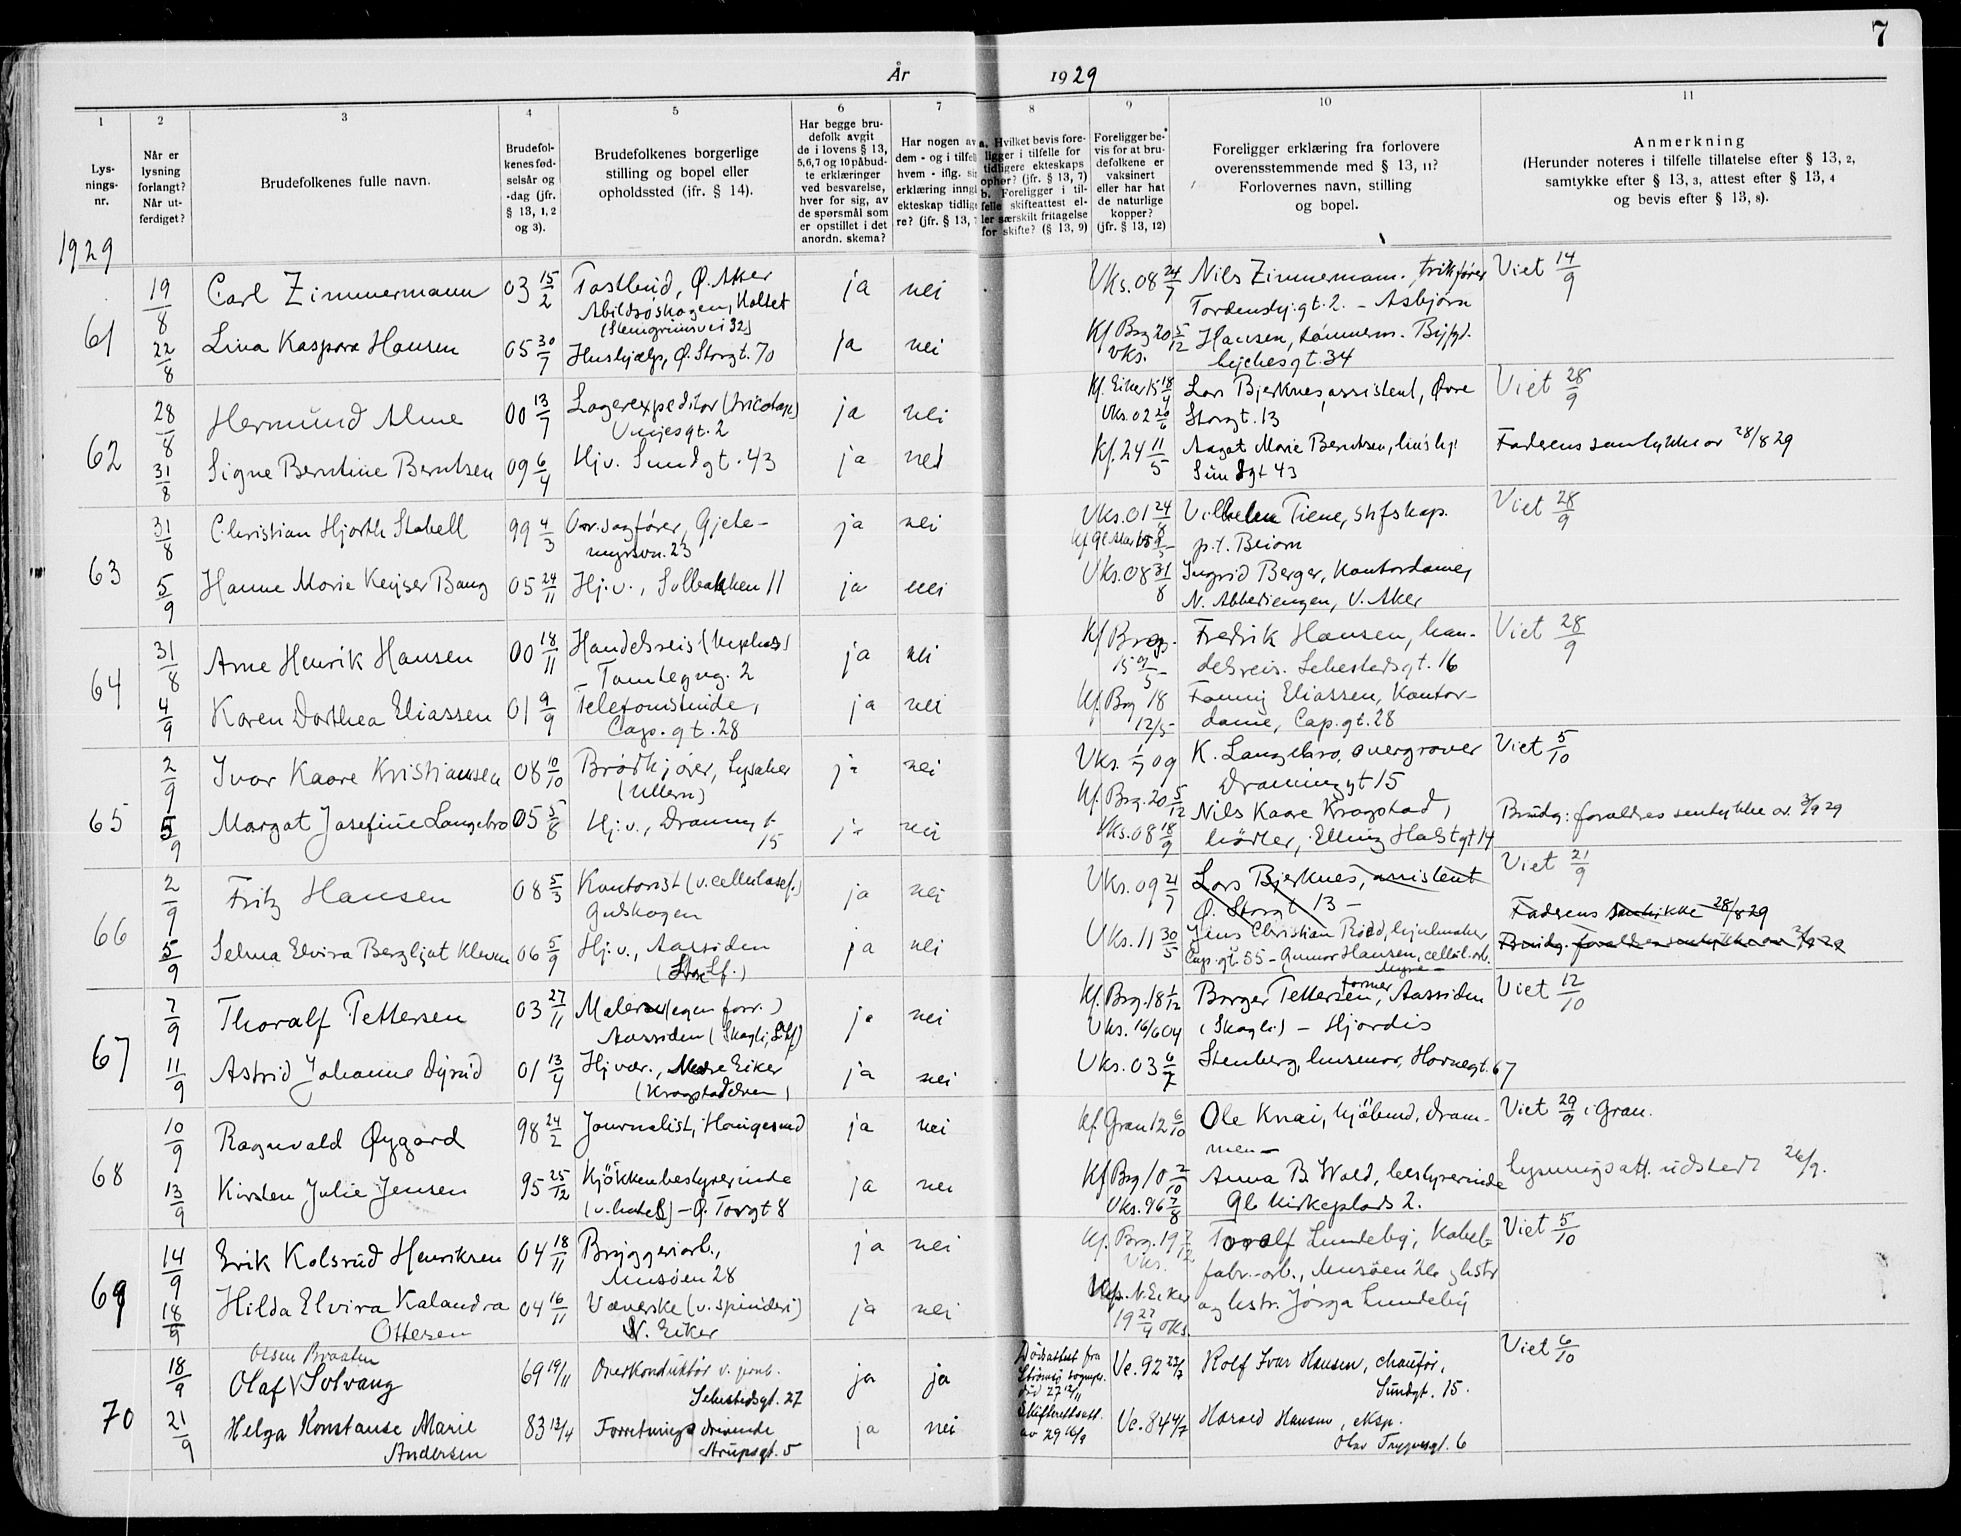 7
År 1929
1 2 3 4 5 6 7 8 9 10 11
Lys-
nings-
nr.
Når er
lysning
forlangt?
Når ut-
ferdiget?
Brudefolkenes fulle navn.
Brudefol-
kenes fød-
selsår og
-dag (jfr.
§ 13, 1, 2
og 3).
Brudefolkenes borgerlige
stilling og bopel eller
opholdssted (ifr. § 14).
Har begge bru-
defolk avgit
de i lovens § 13,
5,6,7 og 10 påbud-
te erklæringer
ved besvarelse,
hver for sig, av
de spørsmål som
er opstillet i det
anordn. skema?
Har nogen av
dem - og i tilfelle
hvem - iflg. sin
erklæring inngått
ekteskap tidlige-
re? (jfr. § 13,
a. Hvilket bevis fore-
ligger i tilfelle for
tidligere ekteskaps
ophør? (jfr. § 13, 7)
b. Foreligger i til-
felle skifteattest el-
ler særskilt fritagelse
for skifte? (§ 13, 9)
Foreligger be-
vis for at bru-
defolkene er
vaksinert
eller har hat
de naturlige
kopper?
(jfr. § 13, 12)
Foreligger erklæring fra forlovere
overensstemmende med § 13, 11?
Forlovernes navn, stilling
og bopel.
Anmerkning
(Herunder noteres i tilfelle tillatelse efter § 13, 2,
samtykke efter § 13, 3, attest efter § 13, 4
og bevis efter § 13, 8).
1929
61
19/8 Carl Zimmermann 03 15/2 Postbud, Ø. Aker ja nei Vks. 08 24/7 Nils Zimmermann, trikfører Viet 14/9
Abildsøskogen, Holtet
(Steingrimsvei 32) Tordenskj.gt. 2. – Asbjørn
22/8 Lina Kaspara Hansen 05 30/7 Hushjælp, Ø. Storgt. 70 ja nei Kf Brg 20 5/12 Hansen, tømmerm.
vks. gt. 34
62
28/8 Hermund Alme 00 13/7 Lagerexpeditør (tricotage) ja nei Kf. Eiker 15 18/4 Lars Bjerknes, assistent, Øvre Viet 28/9
gt. 2 Vks. 02 20/6 Storgt. 13
31/8 Signe Berntine Berntsen 09 6/4 Hj. v. Sundgt. 43 ja nei Kf. 24 11/5 Aagot Marie Berntsen, Faderens samtykke av 28/8 29
Sundgt 43
63
31/8 Christian Hjorth Stabell 99 4/3 Ovr. sagfører, Gjete- ja nei Vks. 01 24/8 Vilhelm Tiene, skfskap. Viet 28/9
myrsvn. 23 p.t. Beiarn
5/9 Hanne Marie Keyser Bang 05 24/11 Hj. v., Solbakken 11 ja nei Vks. 08 31/8 Ingrid Berger, Kontordame,
N. Abbediengen, V. Aker
64
31/8 Arne Henrik Hansen 00 18/11 Handelsreis ja nei Kf Brg. Fredrik Hansen, han- Viet 28/9
Tomtegvg. 2 delsreis. Sehestedsgt. 16
4/9 Karen Dorthea Eliassen 01 9/9 Telefonistinde, ja nei Kf Brg 18 Fanny Eliassen, Kontor-
Cap. gt. 28 12/5 dame, Cap. gt. 28
65
2/9 Ivar Kaare Kristiansen 08 10/10 Brødkjører, Lysaker ja nei Vks. 1/7 09 K. Langebro, overgraver Viet 5/10
(Ullern) gt 15
5/9 Margot Josefine Langebro 05 5/8 Hj. v., ja nei Kf. Brg. 20 5/12 Nils Kaare Krogstad, Brudg: forældres samtykke av 2/9 29
15 Vks. 08 18/9 Elling Holstgt 14
66
2/9 Fritz Hansen 08 5/3 Kontorist (v. cellulosef.) ja nei Vks. 09 21/7 Lars Bjerknes, assistent Viet 21/9
Gulskogen Ø. Storgt 13 –
Faderens samtykke 28/8 29
5/9 Selma Elvira Bergljot Kleven 06 5/9 Hj. v., Aassiden ja nei Vks. 11 30/5 Jens Christian Rødd, hjulmaker Brudg: forældres samtykke av 2/9 29
Cap. gt. 55 – Gunnar Hansen, cellul. arb.
67
7/9 Thoralf Pettersen 03 27/11 Maler (egen forr.) ja nei Kf. Brg. 18 1/12 Borger Pettersen, former, Aassiden Viet 12/10
Aassiden (Skogli, S. Lf) Vks. 16/6 04 (Skogli) – Hjordis
11/9 Astrid Johanne Dyrud 01 13/4 Hj vær., Nedre Eiker ja nei Vks. 03 6/7 Stenberg, husmor, Hornegt. 67
(Krogstadelven)
68
10/9 Ragnvald Øygard 98 24/2 Journalist, Haugesund ja nei Kf. Gran 12 6/10 Ole Knai, Kjøbmd, Dram- Viet 29/9 i Gran.
men –
13/9 Kirsten Julie Jensen 95 25/12 Kjøkkenbestyrerinde ja nei Kf Brg 10 2/10 Anna B. Wold, bestyrerinde lysningsatt. udstedt 26/9.
(v. hotel) – Ø. Torgt 8 Vks. 96 7/8 Gl. Kirkeplads 2.
69
14/9 Erik Kolsrud Henriksen 04 18/11 Bryggeriarb., ja nei Kf. Brg. 19 7/12 Toralf Lundeby, Kabel- Viet 5/10
Muusøen 28 Vks. fabr. arb., Muusøen
18/9 Hilda Elvira Kalandra 04 16/11 Væverske (v. spinderi) ja nei N. Eiker og hstr. Lundeby
Ottersen N. Eiker 19 27/4 vks.
70
Olsen Braaten
18/9 Olaf V Solvang 69 19/11 Overkonduktør v. jernb. ja ja Dødsattest fra Ve. 92 22/7 Rolf Ivar Hansen, chauför, Viet 6/10
Sehestedsgt. 27 Strømsø Sundgt. 15.
21/9 Helga Konstanse Marie 83 13/4 Forretningsdrivende ja nei Skifterettsatt. Ve. 84 4/7 Harald Hansen, eksp.
Andersen Strupsgt. 5 av 29 16/9 Olav Trygvesgt. 6